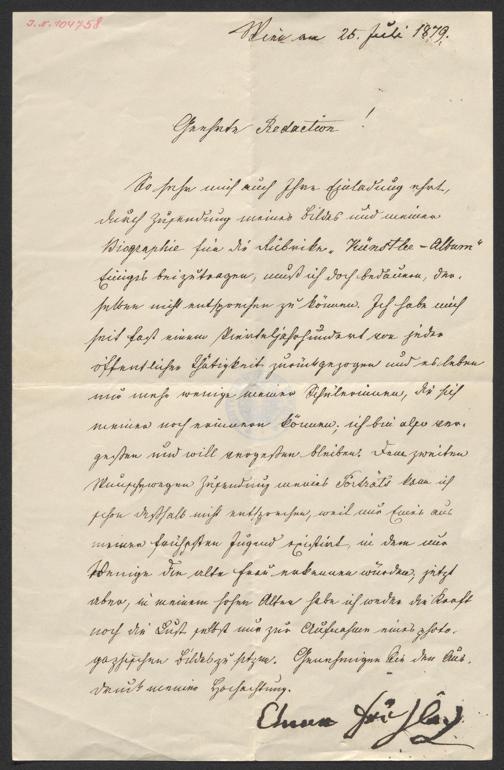 J.N. 104758
Wien am 25. Juli 1879.
Geehrte Redaction!
So sehr mich auch Ihre Einladung ehrt,
durch Zusendung meines Bildes und meiner
Biographie für die Rubrike „Künstler-Album"
Einiges beizutragen, muß ich doch bedauern, der-
selben nicht entsprechen zu können. Ich habe mich
seit fast einem Vierteljahrhundert von jeder
öffentlichen Thätigkeit zurückgezogen und es leben
nur mehr wenige meiner Schülerinnen, die sich
meiner noch erinnern können; ich bin also ver-
gessen und will vergessen bleiben. Dem zweiten
Wunsch wegen Zusendung meines Porträts kann ich
schon deßhalb nicht entsprechen, weil nur Eines aus
meiner frühesten Jugend existirt, in dem nur
Wenige die alte Frau erkennen würden; jetzt
aber, in meinem hohen Alter habe ich weder die Kraft
noch die Lust selbst nur zur Aufnahme eines photo-
grafischen Bildes zu sitzen. Genehmigen Sie den Aus-
druck meiner Hochachtung.
Anna Fröhlich